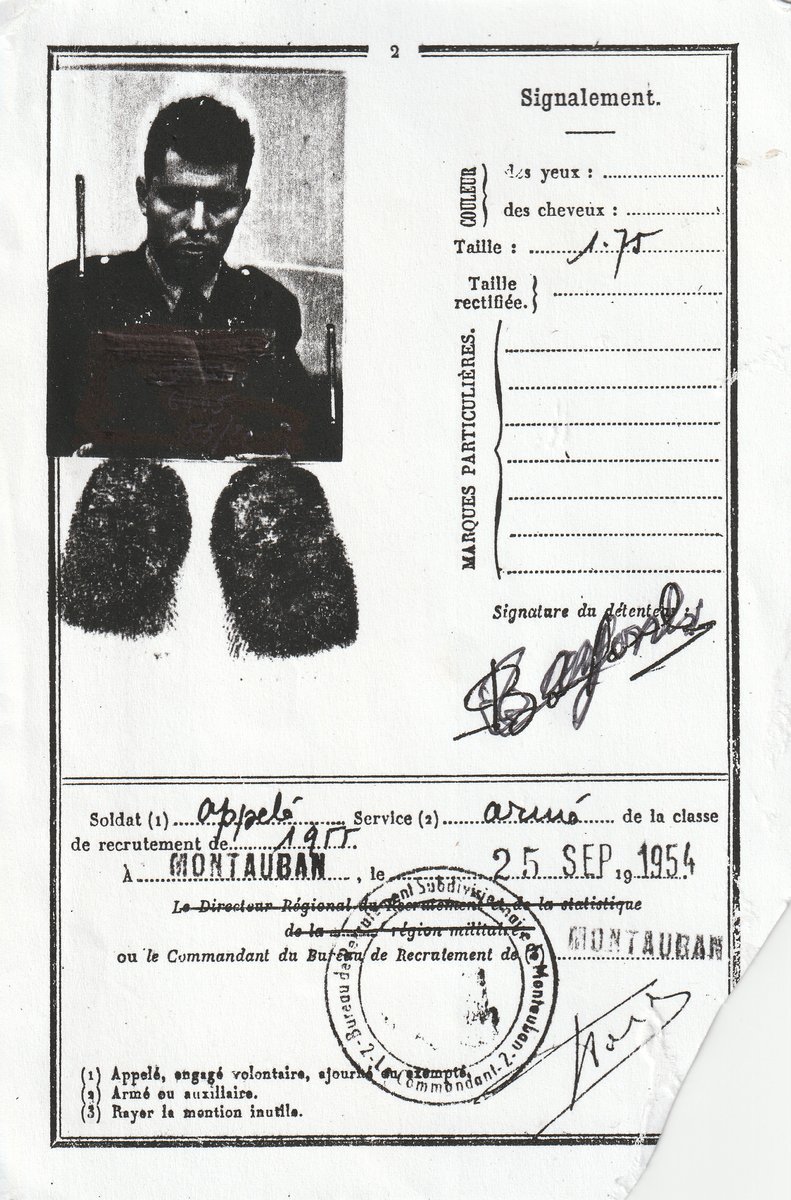 2
Signalement.
COULEUR
des yeux :
des cheveux :
Taille : 1.75
Taille
rectifiée.
MARQUES PARTICULIÈRES.
Signature du détenteur :
Soldat (1) appelé Service (2) armé de la classe
de recrutement de 1955.
À MONTAUBAN, le 25 SEP. 19 1954
Le Directeur Régional du Recrutement et de la statistique
de la région militaire
ou le Commandant du Bureau de Recrutement de MONTAUBAN
Bureau de Recrutement Subdivisionnaire de Montauban
Le Commandant
(1) Appelé, engagé volontaire, ajourné ou exempté.
(2) Armé ou auxiliaire.
(3) Rayer la mention inutile.